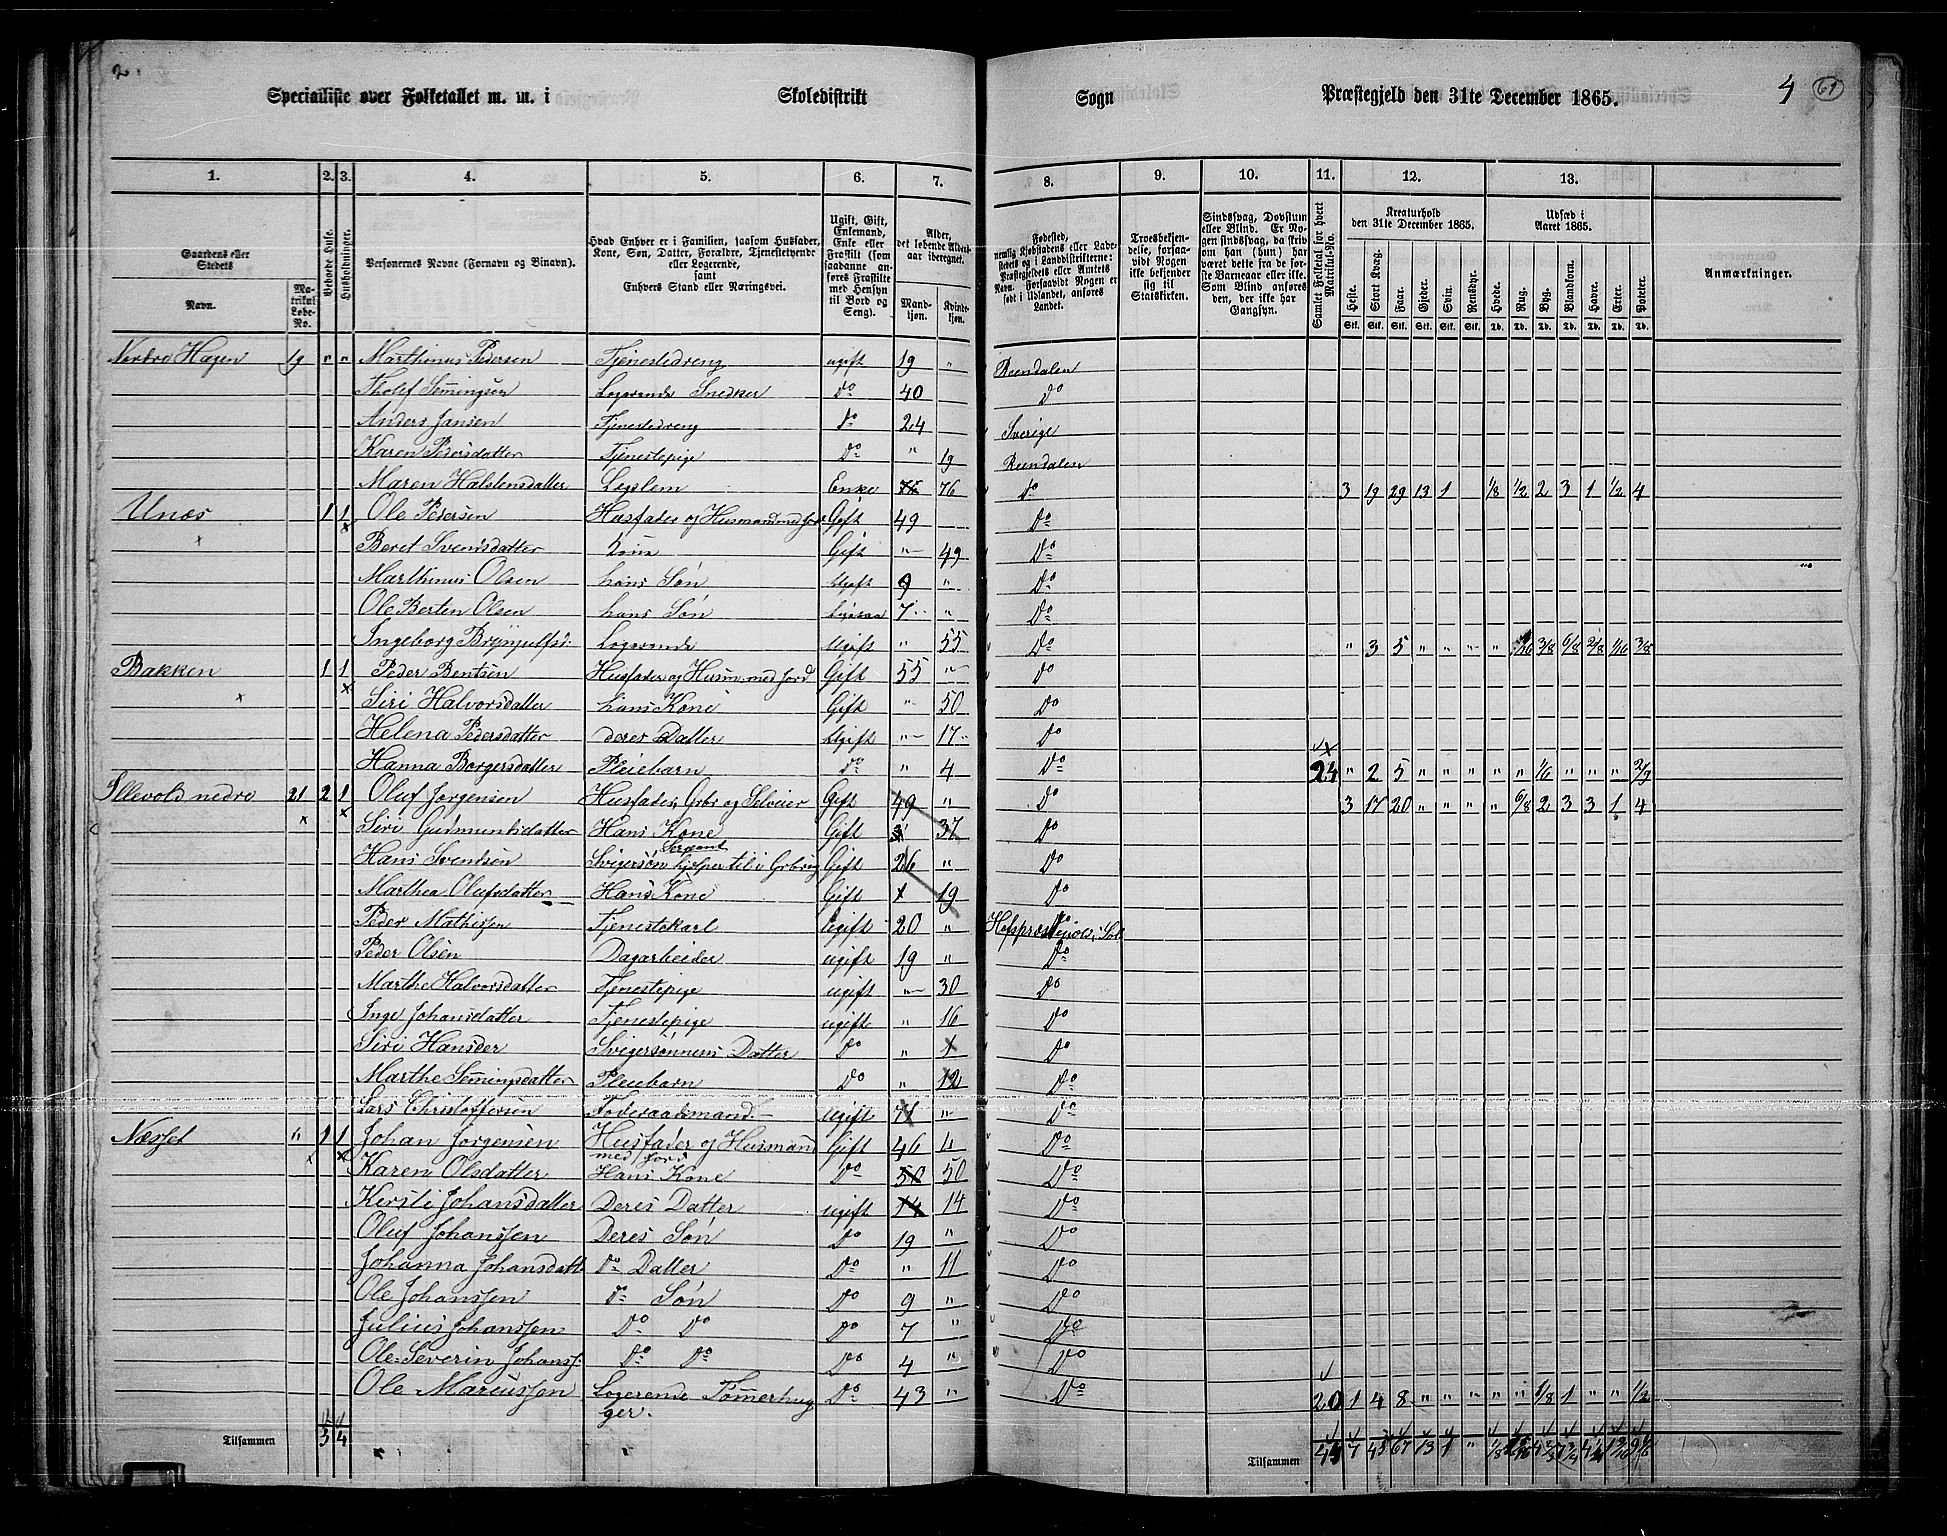 2.
Specialliste over Folketallet m. m. i Skoledistrikt Sogn Præstegjeld den 31te December 1865. 4 61
1. 2. 3. 4. 5. 6. 7. 8. 9. 10. 11. 12. 13.
Gaardens eller Stedets Navn. Matrikul Løbe-No. Beboede Huse. Husholdninger. Personernes Navne (Fornavn og Binavn). Hvad Enhver er i Familien, saasom Husfader, Kone, Søn, Datter, Forældre, Tjenestetyende eller Logerende, samt Enhvers Stand eller Næringsvei. Ugift, Gift, Enkemand, Enke eller Fraskilt (som saadanne anføres Fraskilte med Hensyn til Bord og Seng). Alder, det løbende Aldersaar iberegnet. Mandkjøn. Kvindekjøn. Fødested, nemlig Kjøbstadens eller Ladestedets eller i Landdistrikterne: Præstegjeldets eller Amtets Navn. Forsaavidt Nogen er født i Udlandet, anføres Landet. Troesbekjendelse, forsaavidt Nogen ikke bekjender sig til Statskirken. Sindssvag, Døvstum eller Blind. Er Nogen sindssvag, da skriv om han (hun) har været dette fra de første Barneaar eller ikke. Som Blind anføres den, der ikke har Gangsyn. Samlet Folketal for hvert Matrikul-No. Kreaturhold den 31te December 1865. Heste. Stort Kvæg. Faar. Gjeder. Svin. Rensdyr. Udsæd i Aaret 1865. Hvede. Rug. Byg. Blandkorn. Havre. Erter. Poteter. Anmærkninger.
Stk. Stk. Stk. Stk. Stk. Stk. Td. Td. Td. Td. Td. Td. Td.
Nordre Hagen 19 " " Marthinus Pedersen Tjenestedreng ugift 19 " Reendalen
Tholef Semingsen Logerende Snedker do 40 Do
Anders Jansen Tjenestedreng do 24 Sverige
Karen Pedersdatter Tjenestepige Do " 19 Reendalen
Maren Halstensdatter Legslem Enke 76 do 3 19 29 13 1 1/8 1/2 2 3 1 1/2 4
Unæs 1 1 Ole Pedersen Husfader og Husmand med Jord Gift 49 Do
Beret Svendsdatter Kone Gift " 49 Do
Marthinus Olsen hans Søn Ugift 9 " Do
Ole Berten Olsen hans Søn 7 " Do
Ingeborg Brynjulfsd. Logerende Ugift " 55 Do " 3 5 " " " " 3/8 6/8 2/8 1/16 3/8
Bakken 1 1 Peder Bentsen Husfader og Husm. med Jord Gift 55 " Do
Siri Halvorsdatter hans Kone Gift " 50 Do
Helena Pedersdatter deres Datter Ugift " 17 Do
Hanna Borgersdatter Pleiebarn do " 4 Do 24 " 2 5 " " " " " 1/6 " " " 2/9
Illevold nedre 21 2 1 Oluf Jørgensen Husfader, Grbr og Selveier Gift 49 " Do 3 17 20 " " " " 6/8 2 3 3 1 4
Siri Gudmundsdatter Hans Kone Gift 37 Do
Hans Svendsen Sergeant Svigersøn hjelper til i Grbrug Gift 26 " Do
Marthea Olufsdatter Hans Kone Gift 19 Do
Peder Mathisen Tjenestekarl Ugift 20 "
Peder Olsen Dagarbeider ugift 19 " Do
Marthe Halvorsdatter Tjenestepige ugift " 30 Do
Inge Johansdatter Tjenestepige ugift " 16 Do
Siri Hansder Svigersønnens Datter Do " 1 Do
Marthe Semingsdatter Pleiebarn Do " 12 Do
Lars Christoffersen Foderaadsmand ugift 71 " Do
Næsset " 1 1 Johan Jørgensen Husfader og Husmand med Jord Gift 46 " Do
Karen Olsdatter Hans Kone Do 50 50 Do
Kersti Johansdatter Deres Datter ugift 14 14 Do
Oluf Johanssen Deres Søn Do 19 " Do
Johanna Johansdatt. do Datter Do " 11 Do
Ole Johanssen do Søn Do 9 " Do
Julius Johanssen Do Do Do 7 " Do
Ole Severin Johanss. Do Do Do 4 " Do
Ole Marcussen Logerende Tømmerhugger. Do 43 " Do 20 1 4 8 " " " " " 1/8 1 " " 1/2
Tilsammen 5 4 Tilsammen 44 7 45 67 13 1 "